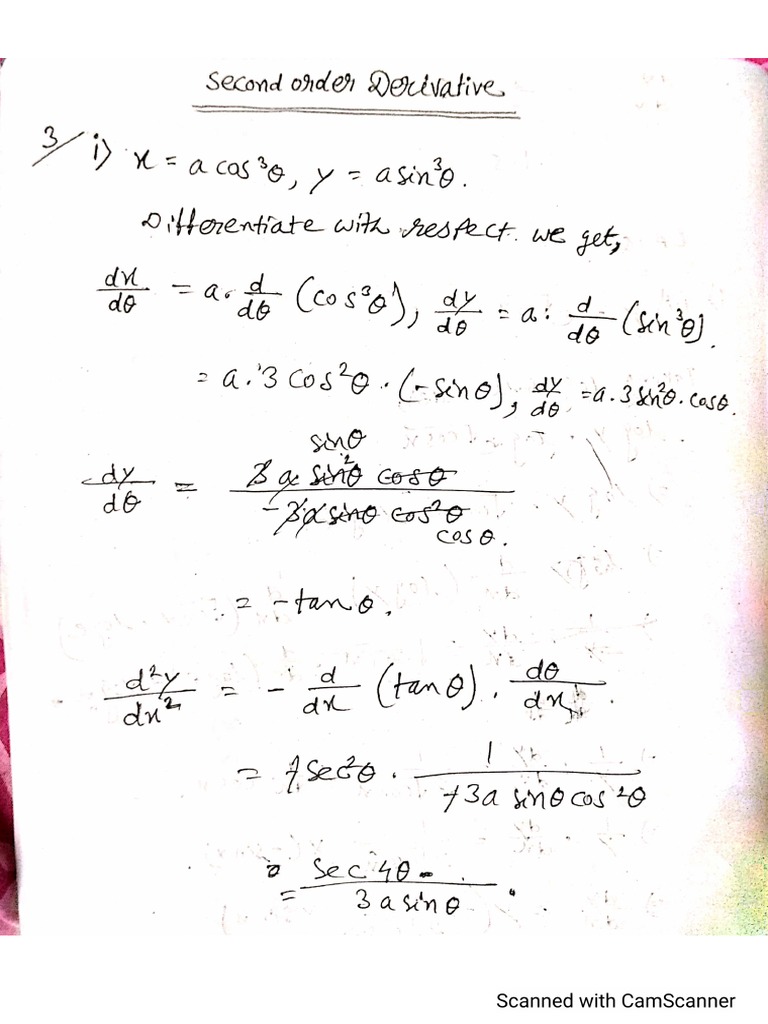 Second order Derivative
3/ i) x = a cos³θ, y = a sin³θ.
Differentiate with respect. we get,
dx/dθ = a. d/dθ (cos³θ), dy/dθ = a. d/dθ (sin³θ).
= a.3 cos²θ . (-sinθ), dy/dθ = a.3 sin²θ. cosθ.
sinθ
dy/dθ = 3 a sin²θ cosθ / -3a sinθ cos²θ
cosθ.
= -tanθ.
d²y/dx² = - d/dx (tanθ) . dθ/dx.
= -sec²θ . 1 / -3a sinθ cos²θ
= sec4θ / 3a sinθ .
Scanned with CamScanner